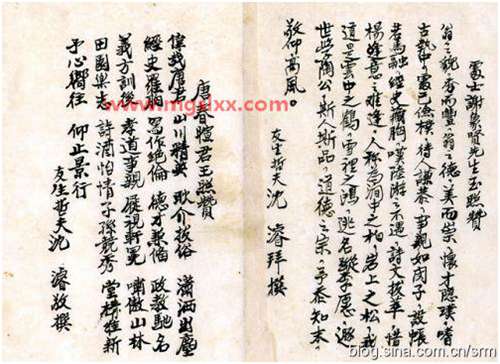 處士謝象賢先生玉照贊
翁之貌秀而豐，翁之德美而崇，懷才隱璞，嗜
古執中，處己儉樸，待人謙恭，事親如閔子，設帳
若馬融，經史滿胸，嘆陸游之不遇，詩文拔萃，惜
楊意之難逢，人稱為澗中之柏，岩上之松，我
道是雲中之鶴，雪裡之鴻，逃名
世陶公，斯人斯品，道德之宗，予忝知末，
敬仰高風。
友生哲夫沈 濬拜撰
唐春君玉照贊
偉哉唐君 山川精英 耿介拔俗 瀟洒出塵
經史羅胸 寫作絕倫 德才兼備 政教馳名
義方訓後 孝道事親 視 嘯傲山林
田園樂志 詩酒怡情 子孫競秀 堂構維新
予心嚮往 仰止景行
友生哲夫沈 濬敬撰
www.mgslxx.com
blog.sina.com.cn/srm